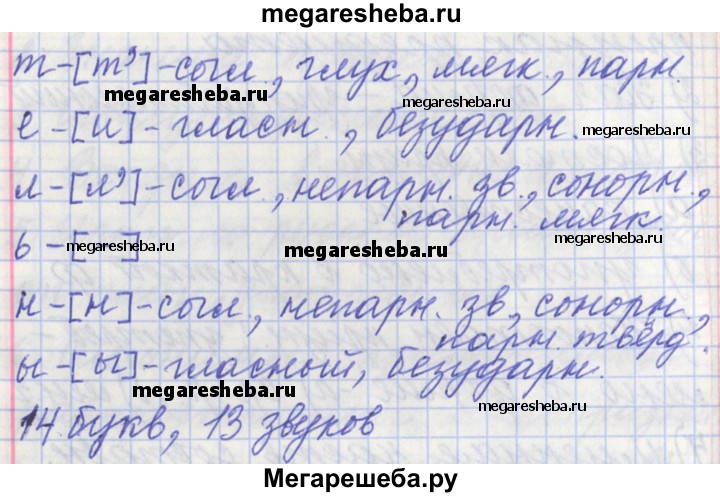 megaresheba.ru
т-[т']-согл., глух., мягк., парн.
megaresheba.ru megaresheba.ru
е-[и]-гласн., безударн.
megaresheba.ru
л-[л']-согл., непарн. зв., сонорн.,
парн. мягк.
ь-[ ]
megaresheba.ru megaresheba.ru
н-[н]-согл., непарн. зв., сонорн.,
парн. твёрд.
ы-[ы]-гласный, безударн.
megaresheba.ru megaresheba.ru
14 букв, 13 звуков
Мегарешеба.ру